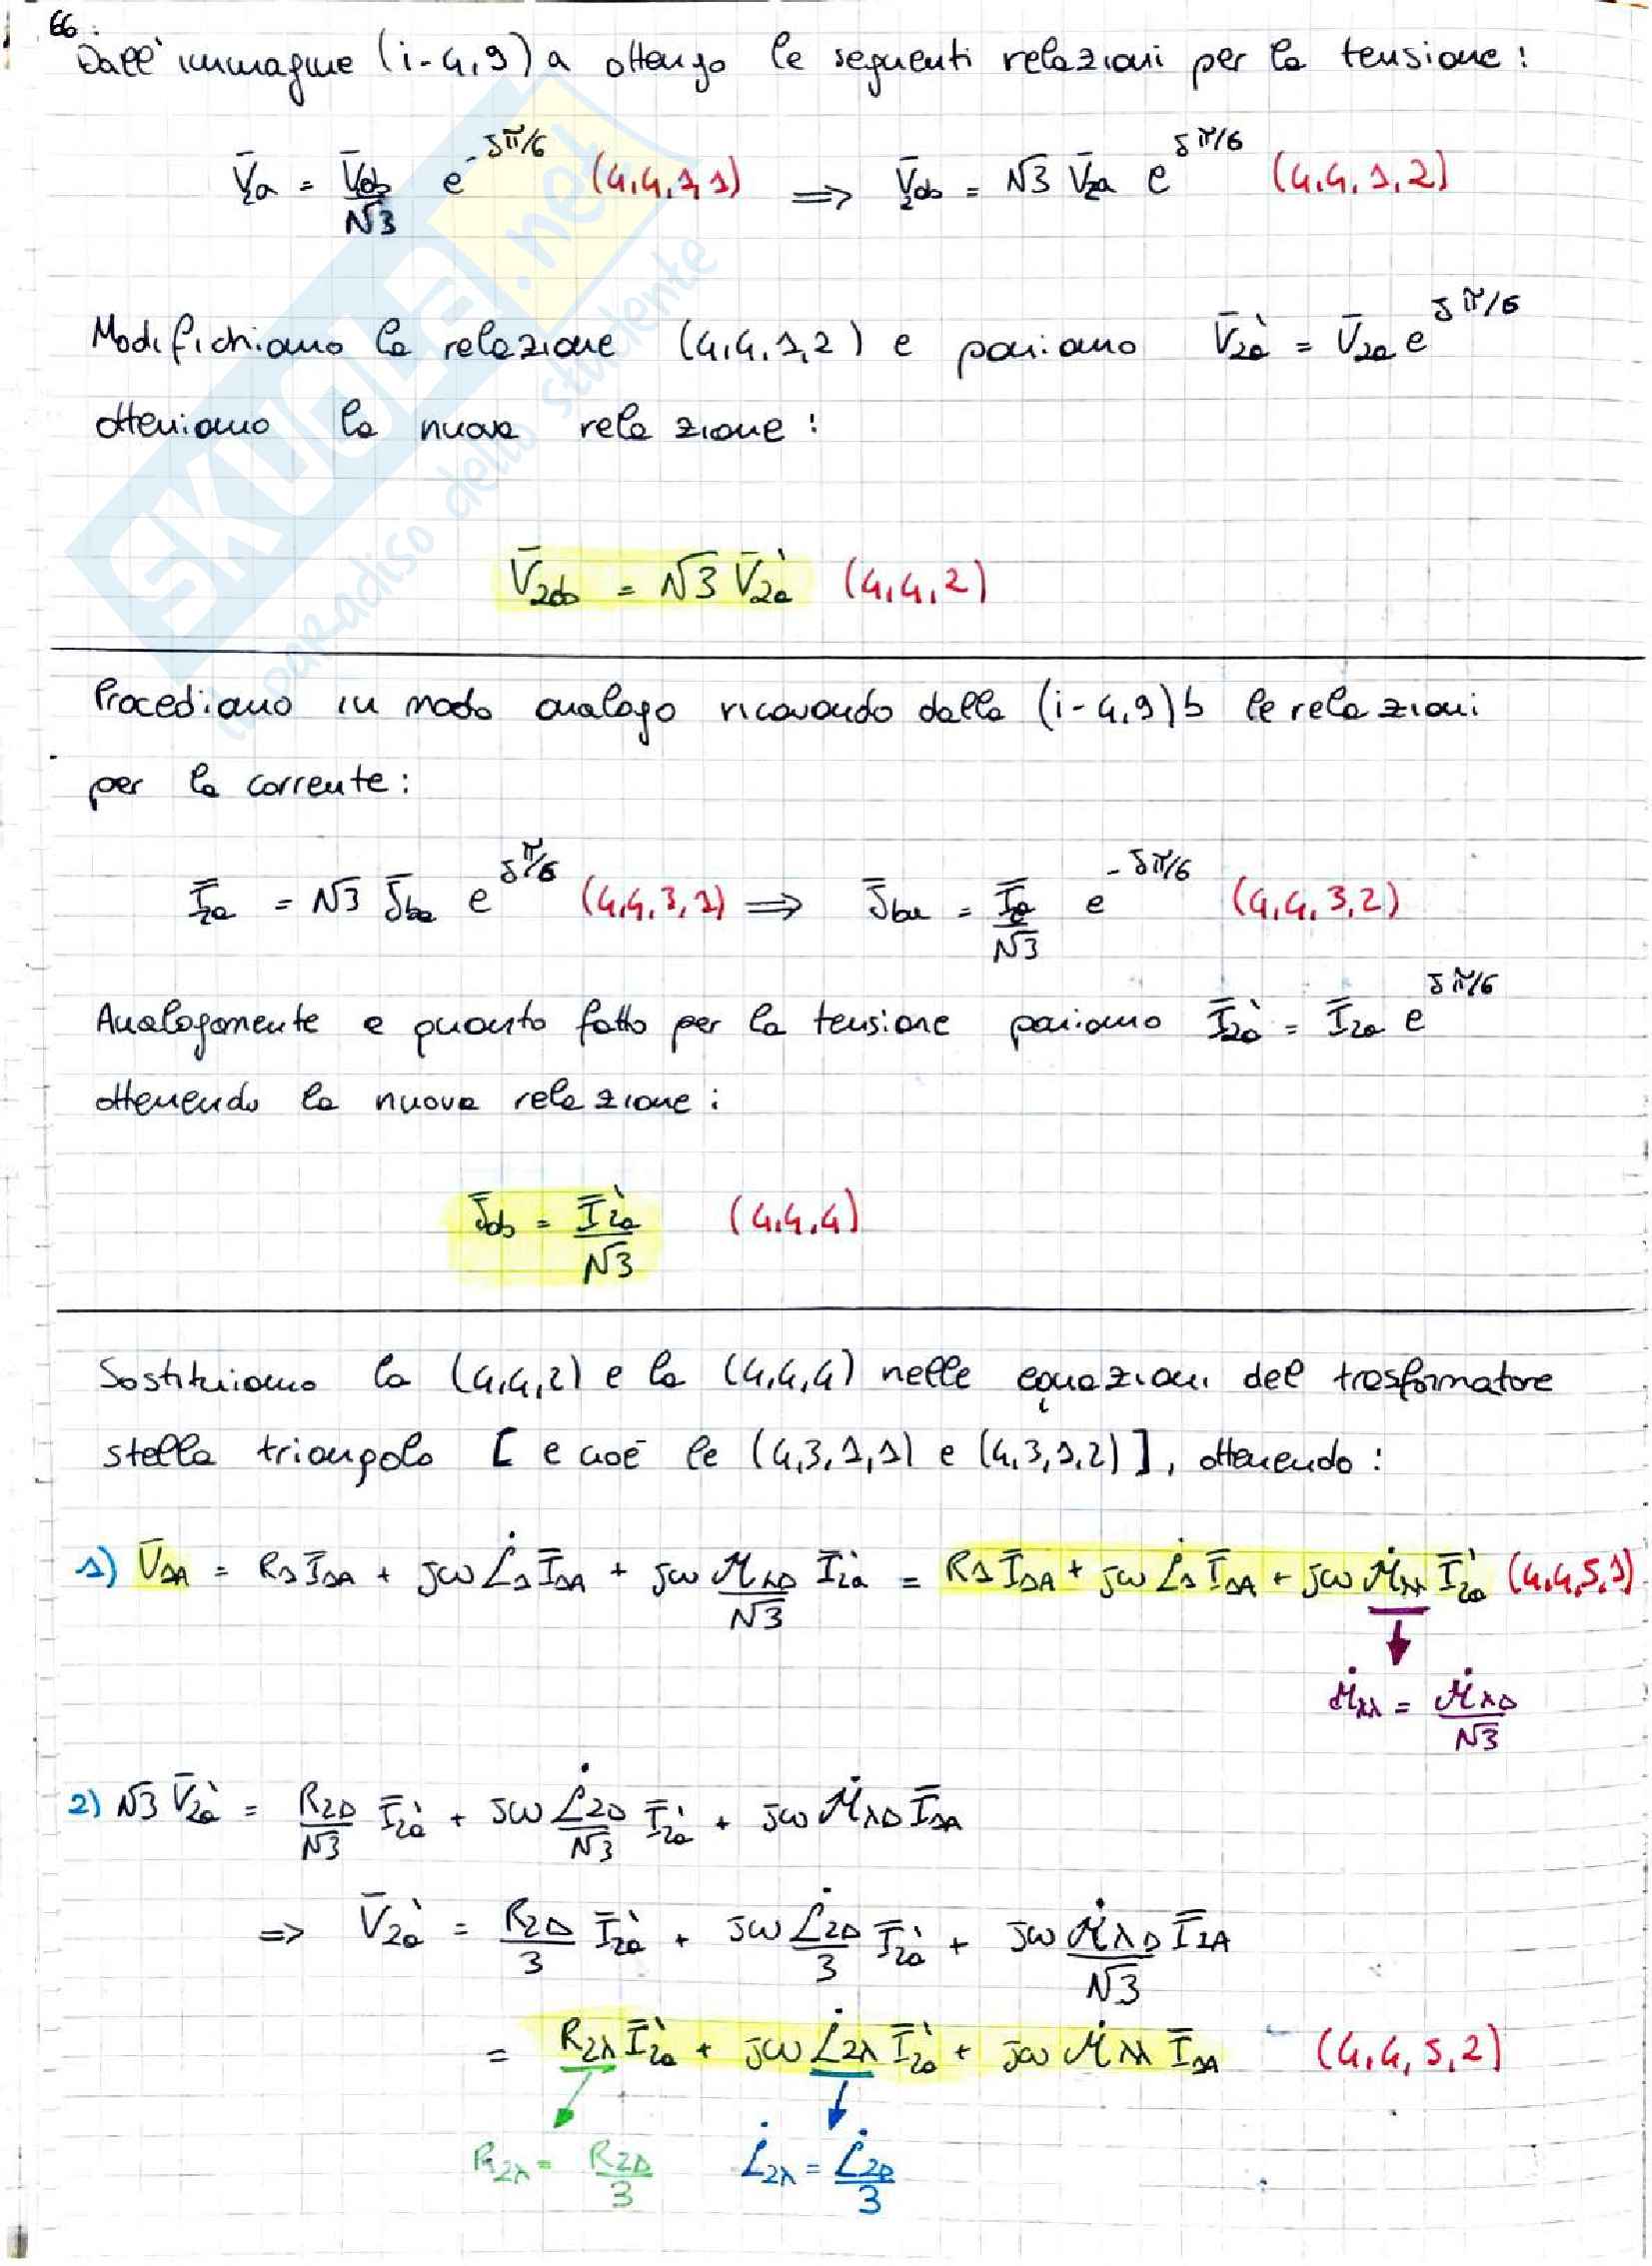 66.
Dall'immagine (i-4,9)a ottengo le seguenti relazioni per la tensione:
V̄2a = V̄ab/√3 e^(-jπ/6) (4,4,1,1) ⟹ V̄2ab = √3 V̄2a e^(jπ/6) (4,4,1,2)
Modifichiamo la relazione (4,4,1,2) e poniamo V̄2a' = V̄2a e^(jπ/6)
otteniamo la nuova relazione:
V̄2ab = √3 V̄2a' (4,4,2)
Procediamo in modo analogo ricavando dalla (i-4,9)b le relazioni
per la corrente:
Ī2a = √3 J̄ba e^(jπ/6) (4,4,3,1) ⟹ J̄ba = Ī2a/√3 e^(-jπ/6) (4,4,3,2)
Analogamente a quanto fatto per la tensione poniamo Ī2a' = Ī2a e^(jπ/6)
ottenendo la nuova relazione:
J̄ab = Ī2a'/√3 (4,4,4)
Sostituiamo la (4,4,2) e la (4,4,4) nelle equazioni del trasformatore
stella triangolo [e cioè le (4,3,1,1) e (4,3,1,2)], ottenendo:
1) V̄1A = R1 Ī1A + jω L̇1 Ī1A + jω Ṁλ∆/√3 Ī2a' = R1 Ī1A + jω L̇1 Ī1A + jω Ṁλλ Ī2a' (4,4,5,1)
Ṁλλ = Ṁλ∆/√3
2) √3 V̄2a' = R2∆/√3 Ī2a' + jω L̇2∆/√3 Ī2a' + jω Ṁλ∆ Ī1A
=> V̄2a' = R2∆/3 Ī2a' + jω L̇2∆/3 Ī2a' + jω Ṁλ∆/√3 Ī1A
= R2λ Ī2a' + jω L̇2λ Ī2a' + jω Ṁλλ Ī1A (4,4,5,2)
R2λ = R2∆/3 L̇2λ = L̇2∆/3
SKUOLA.net
il paradiso dello studente